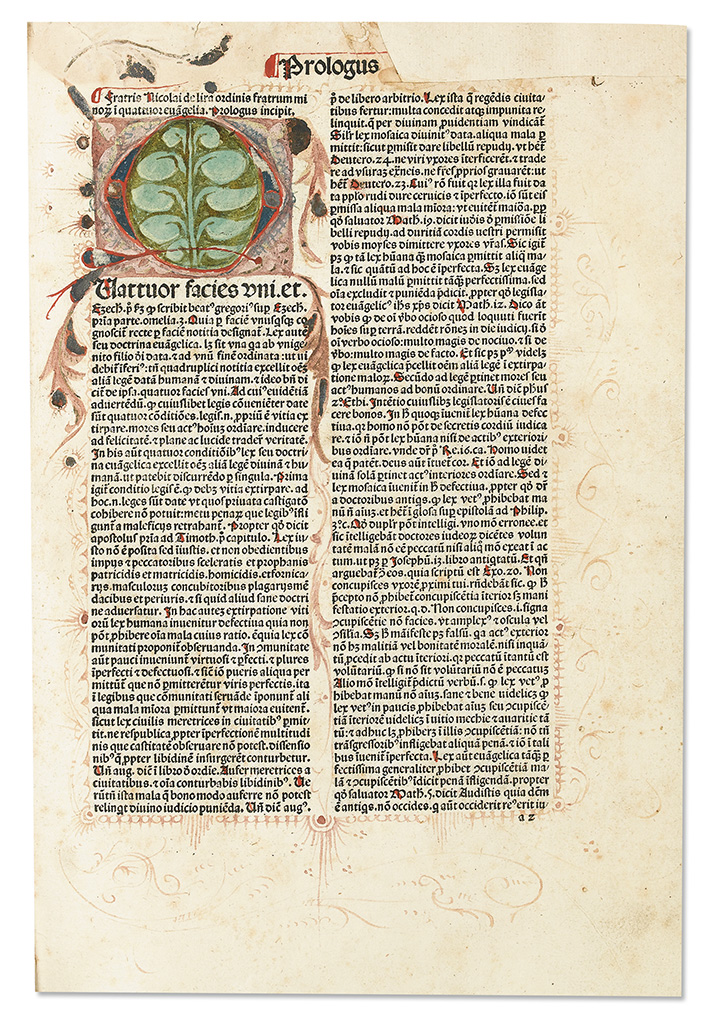 Prologus
Fratris Nicolai de lira ordinis fratrum mi
noꝝ ī quatuor euāgelia. Prologus incipit,
Uattuor facies vni.et.
Ezech. p̄ Fʒ ꝙ scribit beat⁹ gregori⁹ sup̄ Ezech.
pria parte. omelia. 3. Quia ꝑ faciē vnusqsqꝫ co
gnoscit̄ recte ꝑ faciē notitia designat̄. Lex aut̄
seu doctrina euāgelica. lꝫ sit vna qa ab vnige
nito filio dī data. ⁊ ad vnū finē ordinata: ut ui
debit̄ īferi⁹: tn̄ quadruplici notitia excellit oēʒ
aliā legē datā humanā ⁊ diuinam. ⁊ ideo bn̄ di
cit̄ de ipsa. quatuor facies vni. Ad cui⁹ euidētiā
aduertēdū. ꝙ cuiuslibet legis cōueniēter date
sūt quatuor cōditiōes. legis. n. ꝓpriū ē vitia ex
tirpare. mores seu act⁹ hoīus ordīare. inducere
ad felicitatē. ⁊ plane ac lucide trader̄ veritatē.
In his aūt quatuor conditiōib⁹ lex seu doctri
na euāgelica excellit oēʒ aliā legē diuinā ⁊ hu
manā. ut patebit discurrēdo ꝑ singula. Prima
igit̄ conditio legis ē. ꝙ debꝫ vitia extirpare. ad
hoc. n. leges sūt date vt quos priuata castigatō
cohibere nō potuit: metu penaꝝ que legib⁹ īfli
gunt̄ a maleficijs retrahant̄. Propter qō dicit
apostolus pria ad Timoth. p̄ capitulo. Lex iu
sto nō ē posita sed iīustis. et non obedientibus
impijs ⁊ peccatoribus sceleratis et prophanis
patricidis et matricidis. homicidis. et fornica
rijs. masculoruꝫ concubitoribus plagarijs mē
dacibus et periuris. ⁊ si quid aliud sane doctri
ne aduersatur. In hac autez extirpatione viti
orū lex humana inuenitur defectiua quia non
pōt ꝓhibere oīa mala cuius ratio. ē quia lex cō
munitati proponit̄ obseruanda. In ɔmunitate
aūt pauci inueniunt̄ virtuosi ⁊ ꝑfecti. ⁊ plures
īperfecti ⁊ defectuosi. ⁊ sic īo pueris aliqua per
mittūt̄ que nō ꝑmitterēt̄ur viris perfectis. ita
ī legibus que cōmunitati seruāde īponunt̄ ali
qua mala mīora ꝑmittunt̄ vt maiora euitent̄.
sicut lex ciuilis meretrices in ciuitatib⁹ ꝑmit
tit. ne respublica, ꝓpter īperfectionē multitudi
nis que castitatē obseruare nō potest. dissensio
nib⁹ q̄, ꝓpter libidinē insurgerēt conturbetur.
Un̄ aug. diē ī libro ō ordīe. Aufer meretrices a
ciuitatibus. ⁊ oīa conturbabis libidinib⁹. Ve
rūtn̄ ista mala q̄ bono modo auferre nō potest
relinqt diuino iudicio puniēda. Un̄ diē aug⁹.
ꝑ de libero arbitrio. Lex ista q̄ regēdis ciuita
tibus fertur: multa concedit atqꝫ impunita re
linquit. q̄ per diuinam, ꝓuidentiam vindicāt̄
Silr̄ lex mosaica diuinit⁹ data. aliqua mala ꝑ
mittit: sicut ꝑmisit dare libellū repudij. vt hēt̄
Deutero. 24. ne viri vxores īterficerēt. ⁊ trade
re ad vsuras ex̄neis. ne fr̄es ꝓprios grauarēt: ut
hēt̄ Deutero. 23. Cui⁹ rō fuit qꝫ lex illa fuit da
ta pplo rudi dure ceruicis ⁊ īperfecto. iō sūt eis
ꝑmissa aliqua mala mīora: vt euitēt̄ maiōa. ꝓp
qō saluator Math. 19. dicit iudīs ō ꝑmissiōe li
belli repudij. ad duritiā cordis uestri permisit
vobis moyses dimittere vxores vr̄as. Sic igit̄
pꝫ ꝙ tā lex hūana qꝫ mosaica permittit aliq̄ ma
la. ⁊ sic quātū ad hoc ē īperfecta. Sʒ lex euāge
lica nullū malū ꝑmittit tāqꝫ ꝑfectissima. sed
oīa excludit ⁊ puniēda p̄dicit. ꝓpter qō legisla
tor euāgelic⁹ ih̄s xp̄s dicit Math. 12. Dico āt
vobis ꝙ de oī v̄bo ocioso quod loquuti fuerīt
hoīes suꝑ terrā. reddēt rōneʒ in die iudicij. si ō
oī verbo ocioso: multo magis de nociuo. ⁊ si de
v̄bo: multo magis de facto. Et sic pꝫ p⁹ videlꝫ
ꝙ lex euāgelica p̄cellit oēm aliā legē ī extirpa
tione maloꝝ. Secūdo ad legē ꝑtinet mores seu
act⁹ humanos ad bonū ordinare. Un̄ dic̄ phus
2⁹ Ethi. Intētio cuiuslibꝫ legislatoris ē ciues fa
cere bonos. In h̄ quoqꝫ iuenit̄ lex hūana defec
tiua. qꝛ homo nō pōt de secretis cordiū iudica
re. ⁊ iō nō pōt lex hūana nisi de actib⁹ exteriori
bus ordīare. vnde dr̄ p̄ Re. 16. ca. Homo uidet
ea q̄ patēt. deus aūt ītuet̄ cor. Et iō ad legē di
uinā solā ꝑtinet act⁹ īteriores ordīare. Sed ⁊
lex mosaica īuenit̄ in h̄ defectiua. ꝓpter qō dr̄
a doctoribus antiqs. ꝙ lex vet⁹, ꝓhibebat ma
nū nō aīuʒ. et hēt̄ ī glosa suꝑ epistolā ad Philip.
3⁹c. Qō duplr̄ pōt intelligi. vno mō erronee. et
sic ītellegebāt doctores iudeoꝝ dicētes volun
tatē malā nō cē peccatū nisi aliq̄ mō exeat ī ac
tum. ut pꝫ ꝑ Josephū. 12. libro antiqtatū. Et qn̄
arguebāt̄ ɔ̄ eos. quia scriptū est Exo. 20. Non
concupisces vxorē ꝓximi tui. rn̄debāt sic. ꝙ h̄
p̄cepto nō ꝓhibet̄ concupiscētia īterior sʒ mani
festatio exterior. q. d. Non concupisces. i. signa
ɔcupiscētie nō facies. vt amplex⁹ ⁊ oscula vel
ɔsilia. Sʒ h̄ māifeste pꝫ falsū. ga act⁹ exterior
nō hꝫ malitiā vel bonitatē moralē. nisi inquā
tū, ꝓcedit ab actu īteriori. qꝛ peccatū itantū est
volūtariū. ꝙ si nō sit volūtariū nō ē peccatuʒ
Alio mō ītelligit̄ p̄dictū verbū. s. ꝙ lex vet⁹, ꝓ
hibebat manū nō aīuʒ. sane ⁊ bene uidelicʒ ꝙ
lex vet⁹ in paucis, ꝓhibebat aīuʒ seu ɔcupiscē
tiā īteriorē uidelicʒ ī uitio mechie ⁊ auaritie tā
tū: ⁊ adhuc lꝫ, ꝓhiberꝫ ī illis ɔcupiscētiā: nō tn̄
trāsgressorib⁹ īnfligebat aliquā penā. ⁊ iō ī tali
bus iuenit̄ īperfecta. Lex aūt euāgelica tāqꝫ ꝑ
fectissima generaliter, ꝓhibet ɔcupiscētiā ma
lā. ⁊ ɔcupiscētib⁹ īdicit penā īfligenda. propter
qō saluator Math. 5. dicit Audistis quia dēm
ē antiqs. nō occides. ꝙ aūt occiderit re⁹ erit iu
a 2